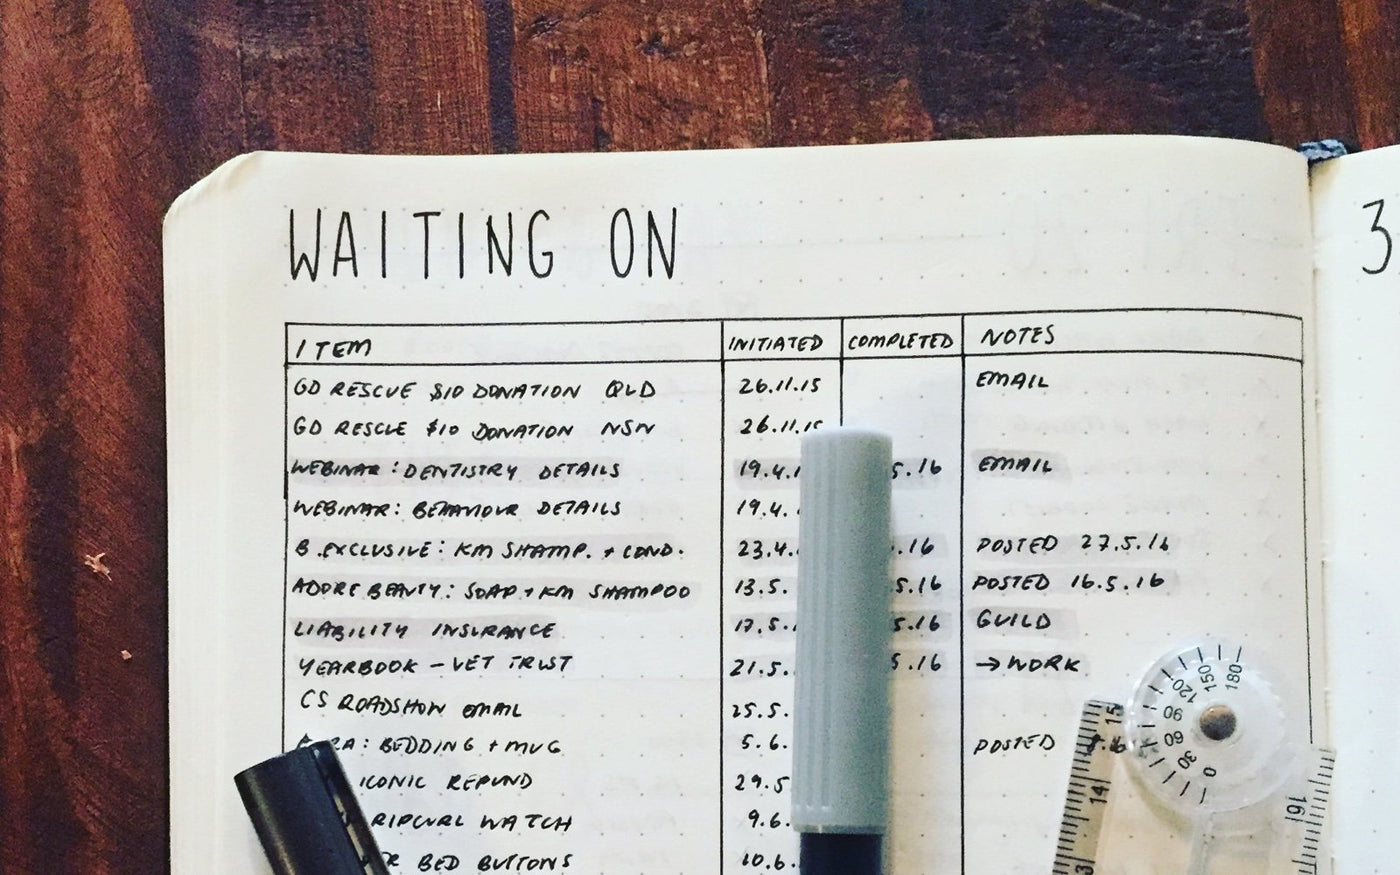 WAITING ON
3
ITEM INITIATED COMPLETED NOTES
GD RESCUE $10 DONATION QLD 26.11.15 EMAIL
GD RESCUE $10 DONATION NSW 26.11.15
WEBINAR: DENTISTRY DETAILS 19.4.1 5.16 EMAIL
WEBINAR: BEHAVIOUR DETAILS 19.4.
B.EXCLUSIVE: KM SHAMP. + COND. 23.4. .16 POSTED 27.5.16
ADORE BEAUTY: SOAP + KM SHAMPOO 13.5. 5.16 POSTED 16.5.16
LIABILITY INSURANCE 17.5. 5.16 GUILD
YEARBOOK - VET TRUST 21.5. 5.16 → WORK
CS ROADSHOW EMAIL 25.5.
RA: BEDDING + MUG 5.6. POSTED
ICONIC REFUND 29.5
RIPCURL WATCH 9.6.
BED BUTTONS 10.6.
0 30 60 90 120 150 180
15
14
16